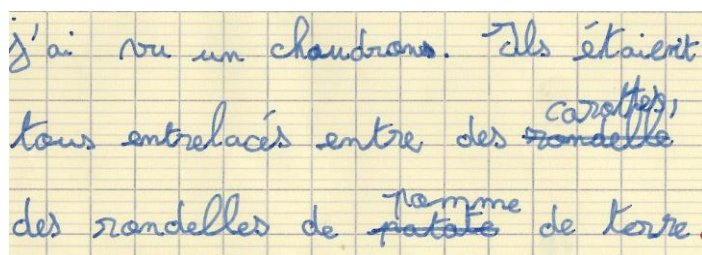 j'ai vu un chaudrons. Ils étaient
tous entrelacés entre des rondelle carottes,
des rondelles de patate pomme de terre.